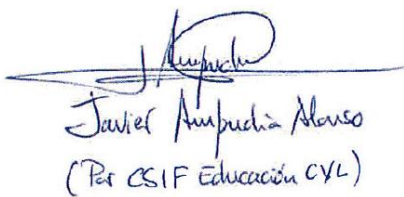 Ampudia
Javier Ampudia Alonso
(Por CSIF Educación CYL)